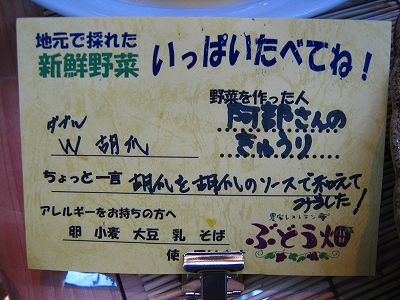 地元で採れた
新鮮野菜 いっぱいたべてね!
野菜を作った人
ダブル 阿部さんの
W 胡瓜 きゅうり
ちょっと一言 胡瓜を胡瓜のソースで和えて
みました!
アレルギーをお持ちの方へ
卵 小麦 大豆 乳 そば
農家レストラン
ぶどう畑
使